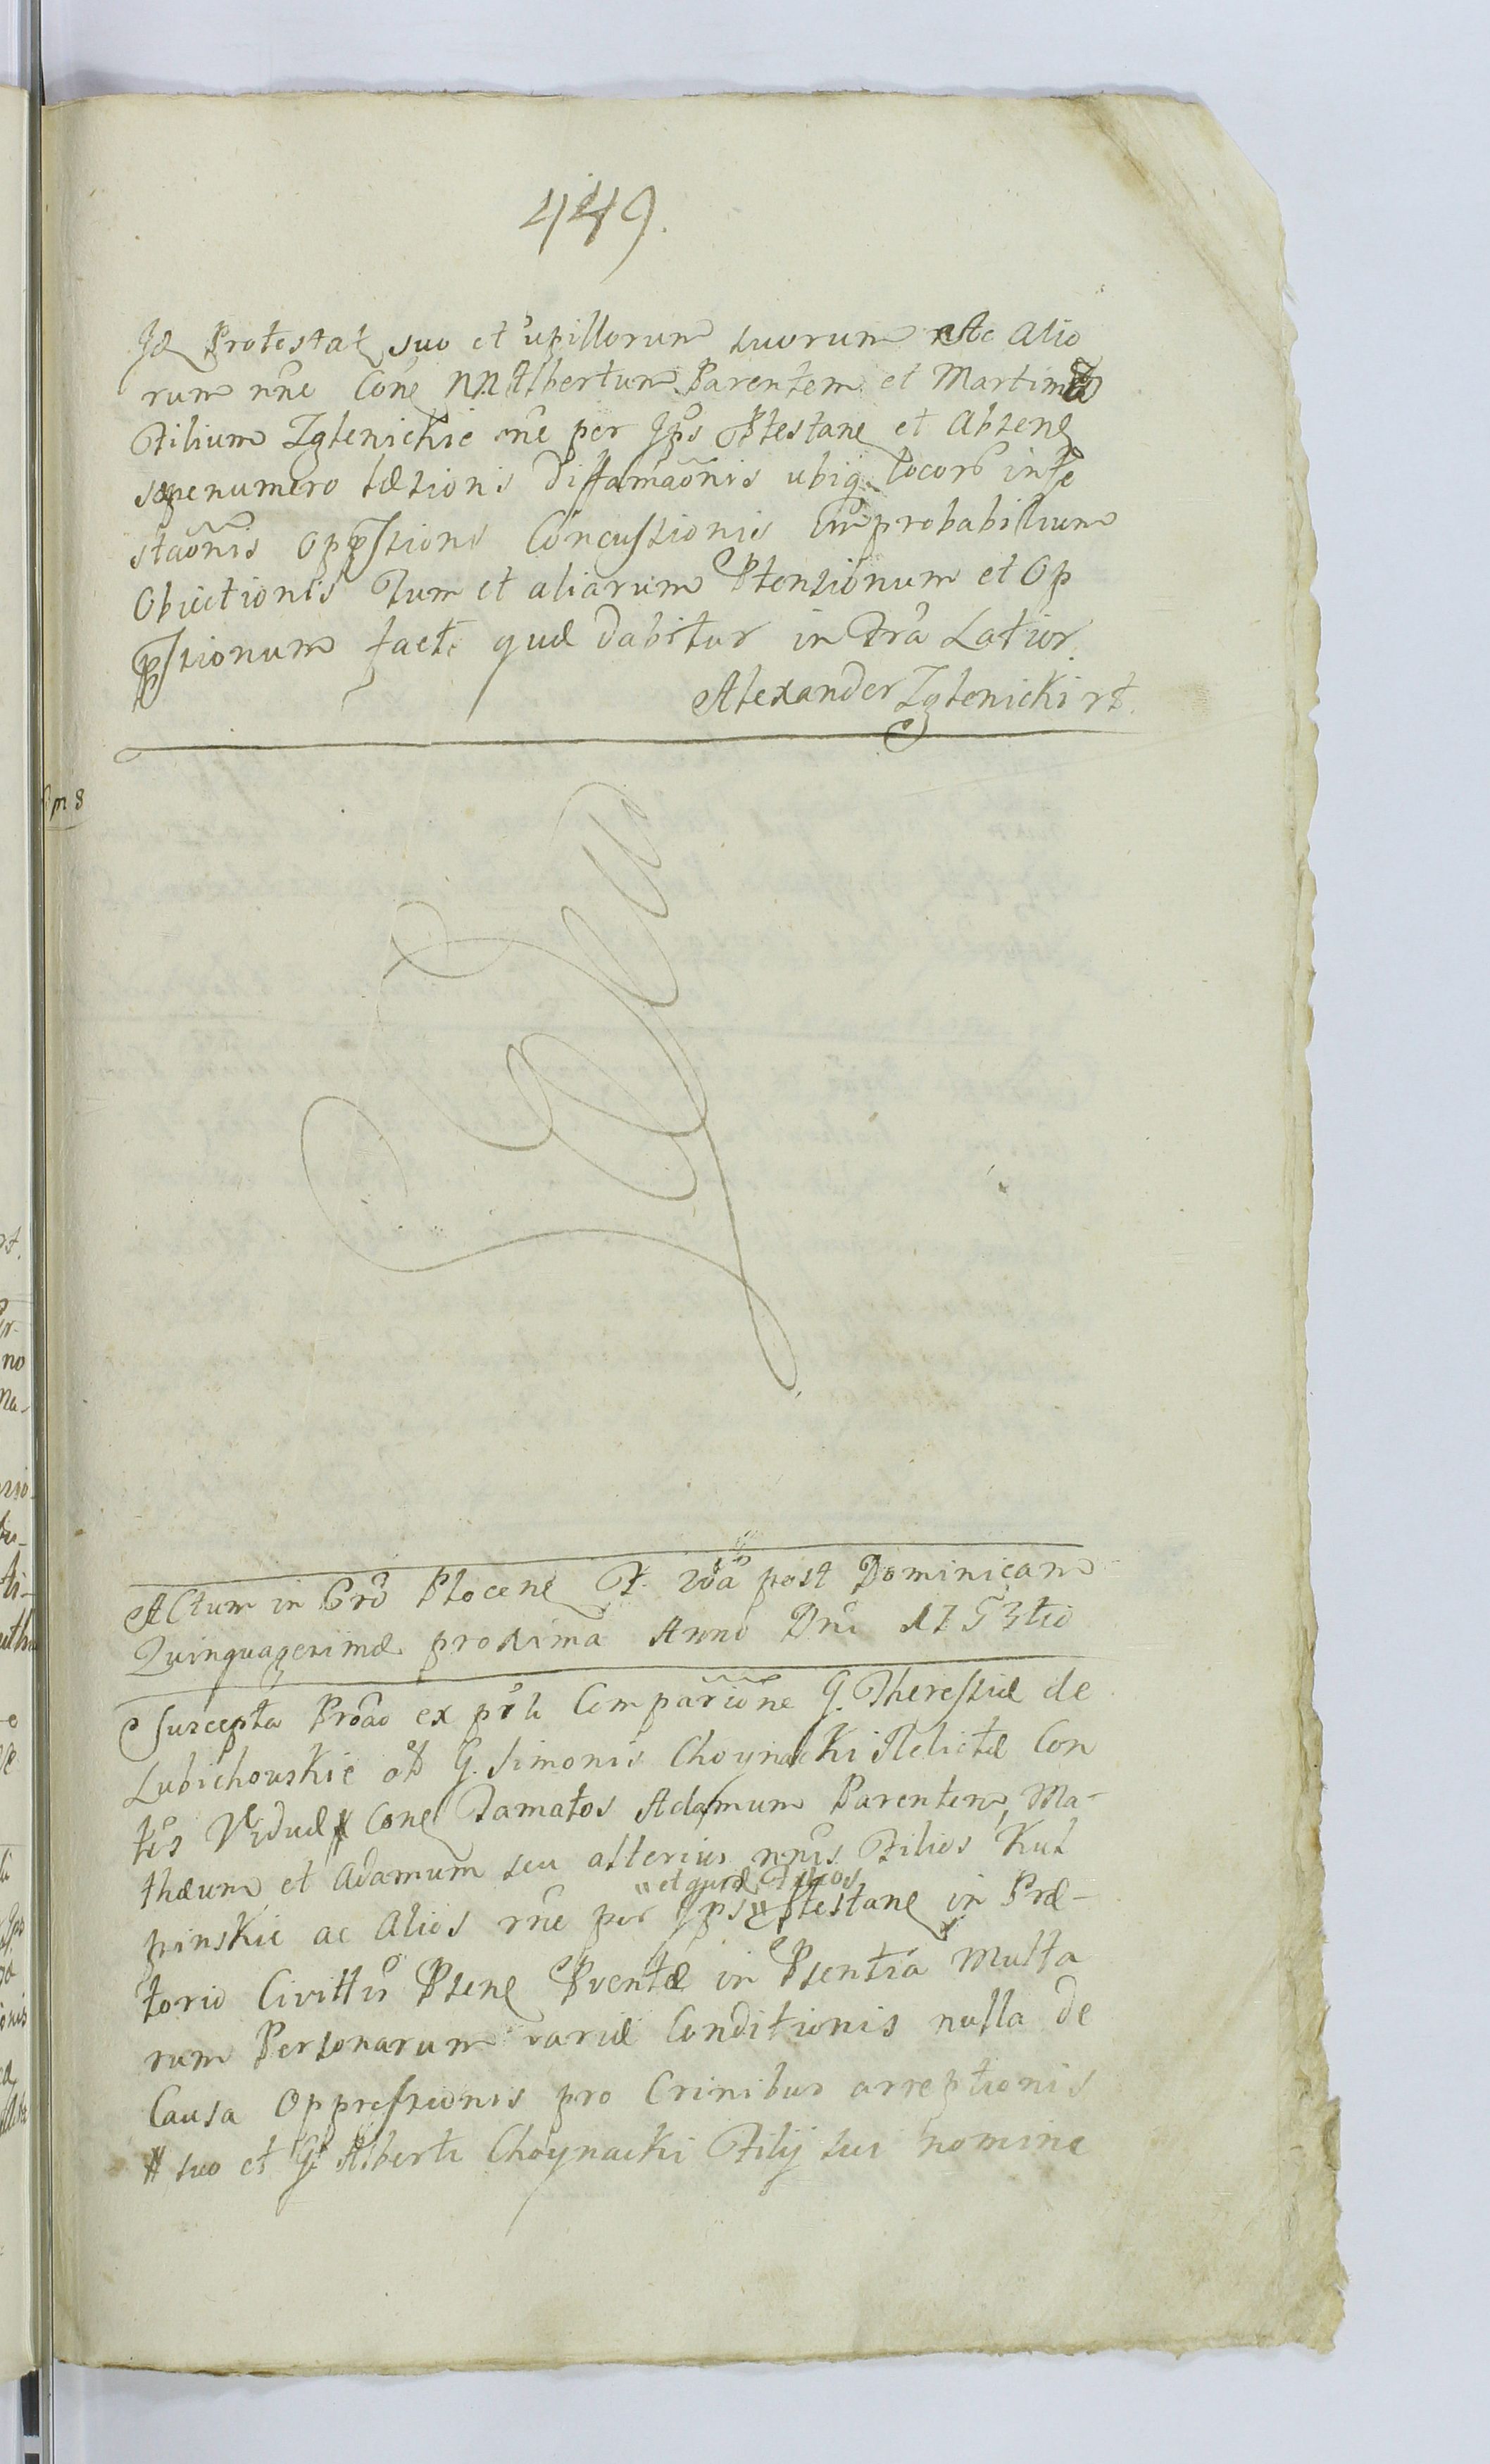 449.
Id Protestat suo et upillorum suorum Ac alio
rum nne Cone NN Albertum Parentem et Martinum
Filium Zglenickie rne per Ips Ptestane et Absene
sæpenumero læsionis diffamaonis ubiq locorb infe
staonis oppssionis Concussionis improbabilium
Obiectionis Tum et aliarum Ptensionum et Op
pssionum fact quæ dabitur infra Latior
Alexander Zglenicki rt.
Actum in Cro Plocene F. 2da post Dominicam
Quinquagesimæ proxima Anno Dni 1753tio
Suscepta Proao ex prh Compariône G. Theressiæ de
Lubichouskie ol G. Simonis Choynacki Relictæ Con
tis Viduæ # Cone Famatos Adamum Parentem, Ma-
thæum et Adamum seu alterius nnis Filios Kul
"et quos Filios
pinskie ac alios rne per Ips " Ptestane in Præ-
torio Civittis Psene Pventæ in Psentia multa
rum Personarum variæ Conditionis nulla de
Causa Oppressionis pro Crinibus arreptionis
# suo et G. Alberti Choynacki Filij sui nomine